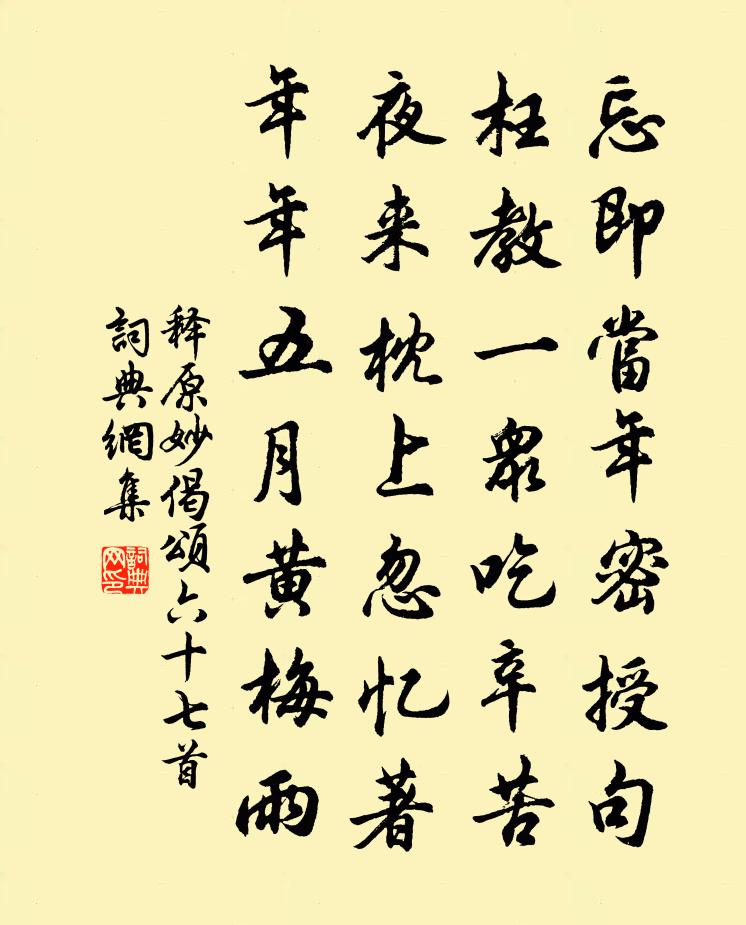 忘即當年密授句
枉教一眾吃辛苦
夜来枕上忽忆著
年年五月黄梅雨
释原妙偈頌六十七首
詞典網集
詞典网印